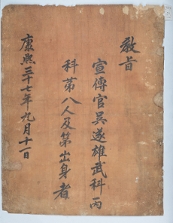 敎旨
宣傳官吳遂雄武科丙
科第八人及第出身者
康熙三十七年九月十一日